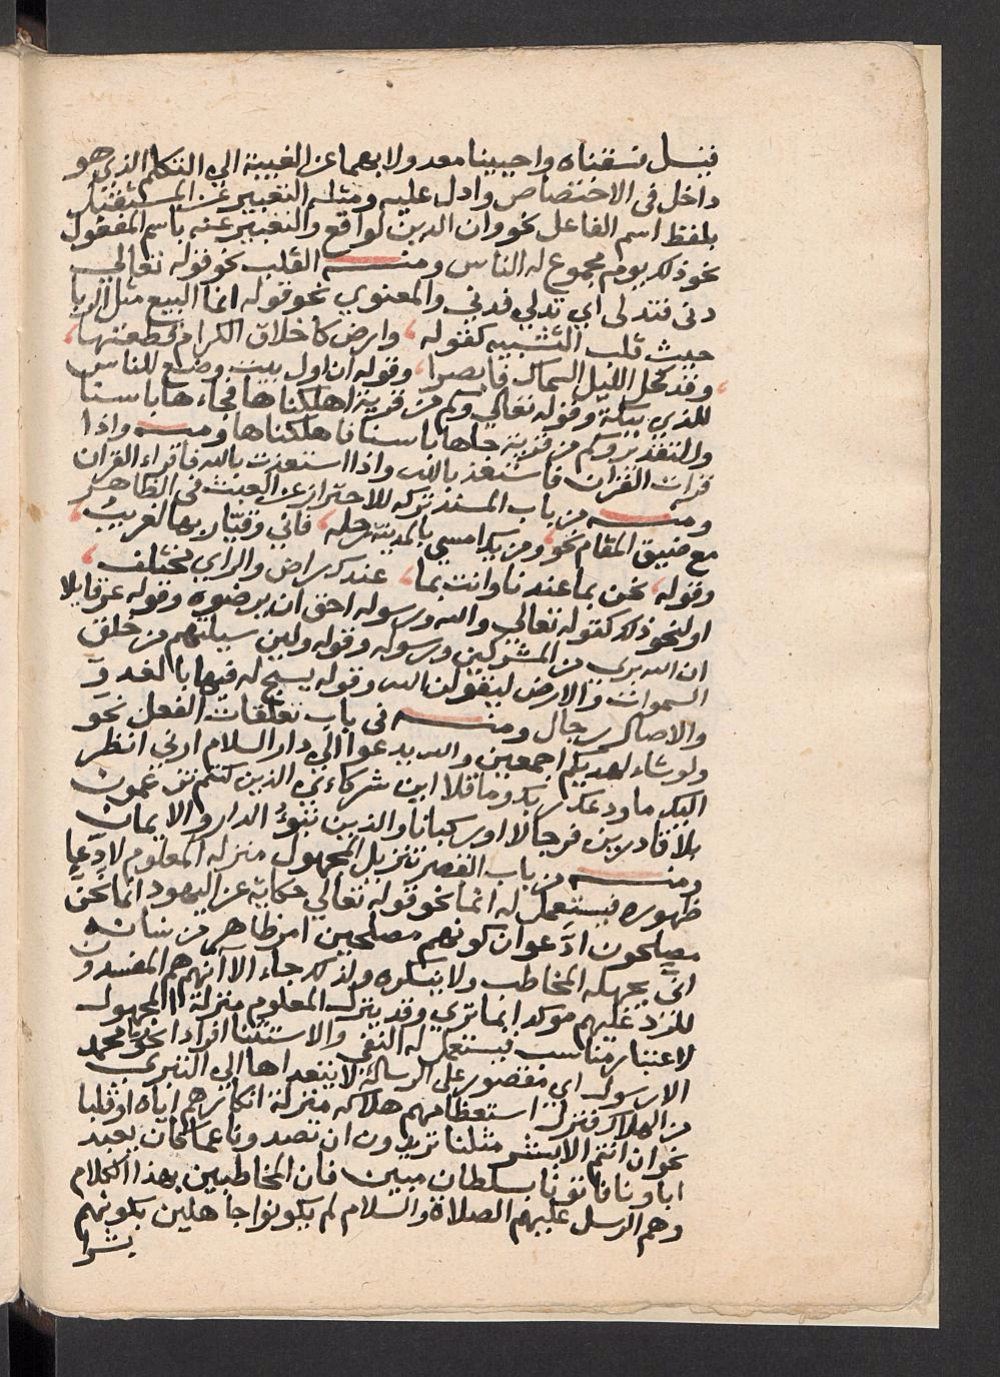 فبسل فسقناه واحيينا معدولا بهما عن الغيبة الي التكلم الذي هو
داخل في الاختصاص وادل عليه ومثله التعبير عن المستقبل
بلفظ اسم الفاعل نحو وان الدين لواقع والتعبير عنه باسم المفعول
نحو ذلك يوم مجموع له الناس ومنــه القلب نحو قوله تعالي
دنى فتدلى اي تدلي فدني والمعنوي نحو قوله انما البيع مثل الربا
حيث قلب التشبيه كقوله ، وارض كاخلاق الكرام قطعتها ،
، وقد كحل الليل السماك فابصرا ، وقوله ان اول بيت وضع للناس
للذي ببكة وقوله تعالي وكم من قرية اهلكناها فجاءها باسنا
والتقدير وكم من قرية جاها باسنا فاهلكناها ومنــه واذا
قرات القران فاستعذ بالله واذا استعذت بالله فاقراء القران
ومنــه من باب المسند تركه للاحتراز عن العبث في الظاهر
مع ضيق المقام نحو ، ومن يك امسي بالمدينة رحله ، فاني وقيّار بها لغريب ،
وقوله ، نحن بما عندنا وانت بما ، عندك راض والراي مختلف ،
او لنحو ذلك كقوله تعالي والله ورسوله احق ان يرضوه وقوله عز قايلا
ان الله بري من المشركين ورسوله وقوله ولين سيلتهم من خلق
السموات والارض ليقولن الله وقوله يسبح له فيها بالغدو
والاصال رجال ومنــه في باب تعلقات الفعل نحو
ولو شاء لهديكم اجمعين والله يدعوا الي دار السلام ارني انظر
اليك ما ودعك ربك وما قلا اين شركاءي الذين كنتم تزعمون
بلا قادرين فرجالا او ركبانا والذين تبوءُ الدار والايمان
ومنــه من باب القصر تنزيل المجهول منزله المعلوم لادّعا
ظهوره فيستعمل له انما نحو قوله تعالي حكاية عن اليهود انما نحن
مصلحون ادّعوا ان كونهم مصلحين امر ظاهر من شانه
ان يجهله المخاطب ولا ينكره ولذلك جاء الا انهم هم المفسدون
للرد عليهم موكدا بما تري وقد ينزل المعلوم منزلة المجهول
لاعتبار مناسب فيستعمل له النفي والاستثنا افرادا نحو ما محمد
الا رسول اي مقصور على الرسالة لا يتعداها الي التبري
من الهلاك فنزل استعظامهم هلاكه منزلة انكارهم اياه او قلبا
نحو ان انتم الا بشر مثلنا تريدون ان تصدونا عما كان يعبد
اباونا فاتونا بسلطان مبين فان المخاطبين بهذا الكلام
وهم الرسل عليهم الصلاة والسلام لم يكونوا جاهلين بكونهم
بشرا